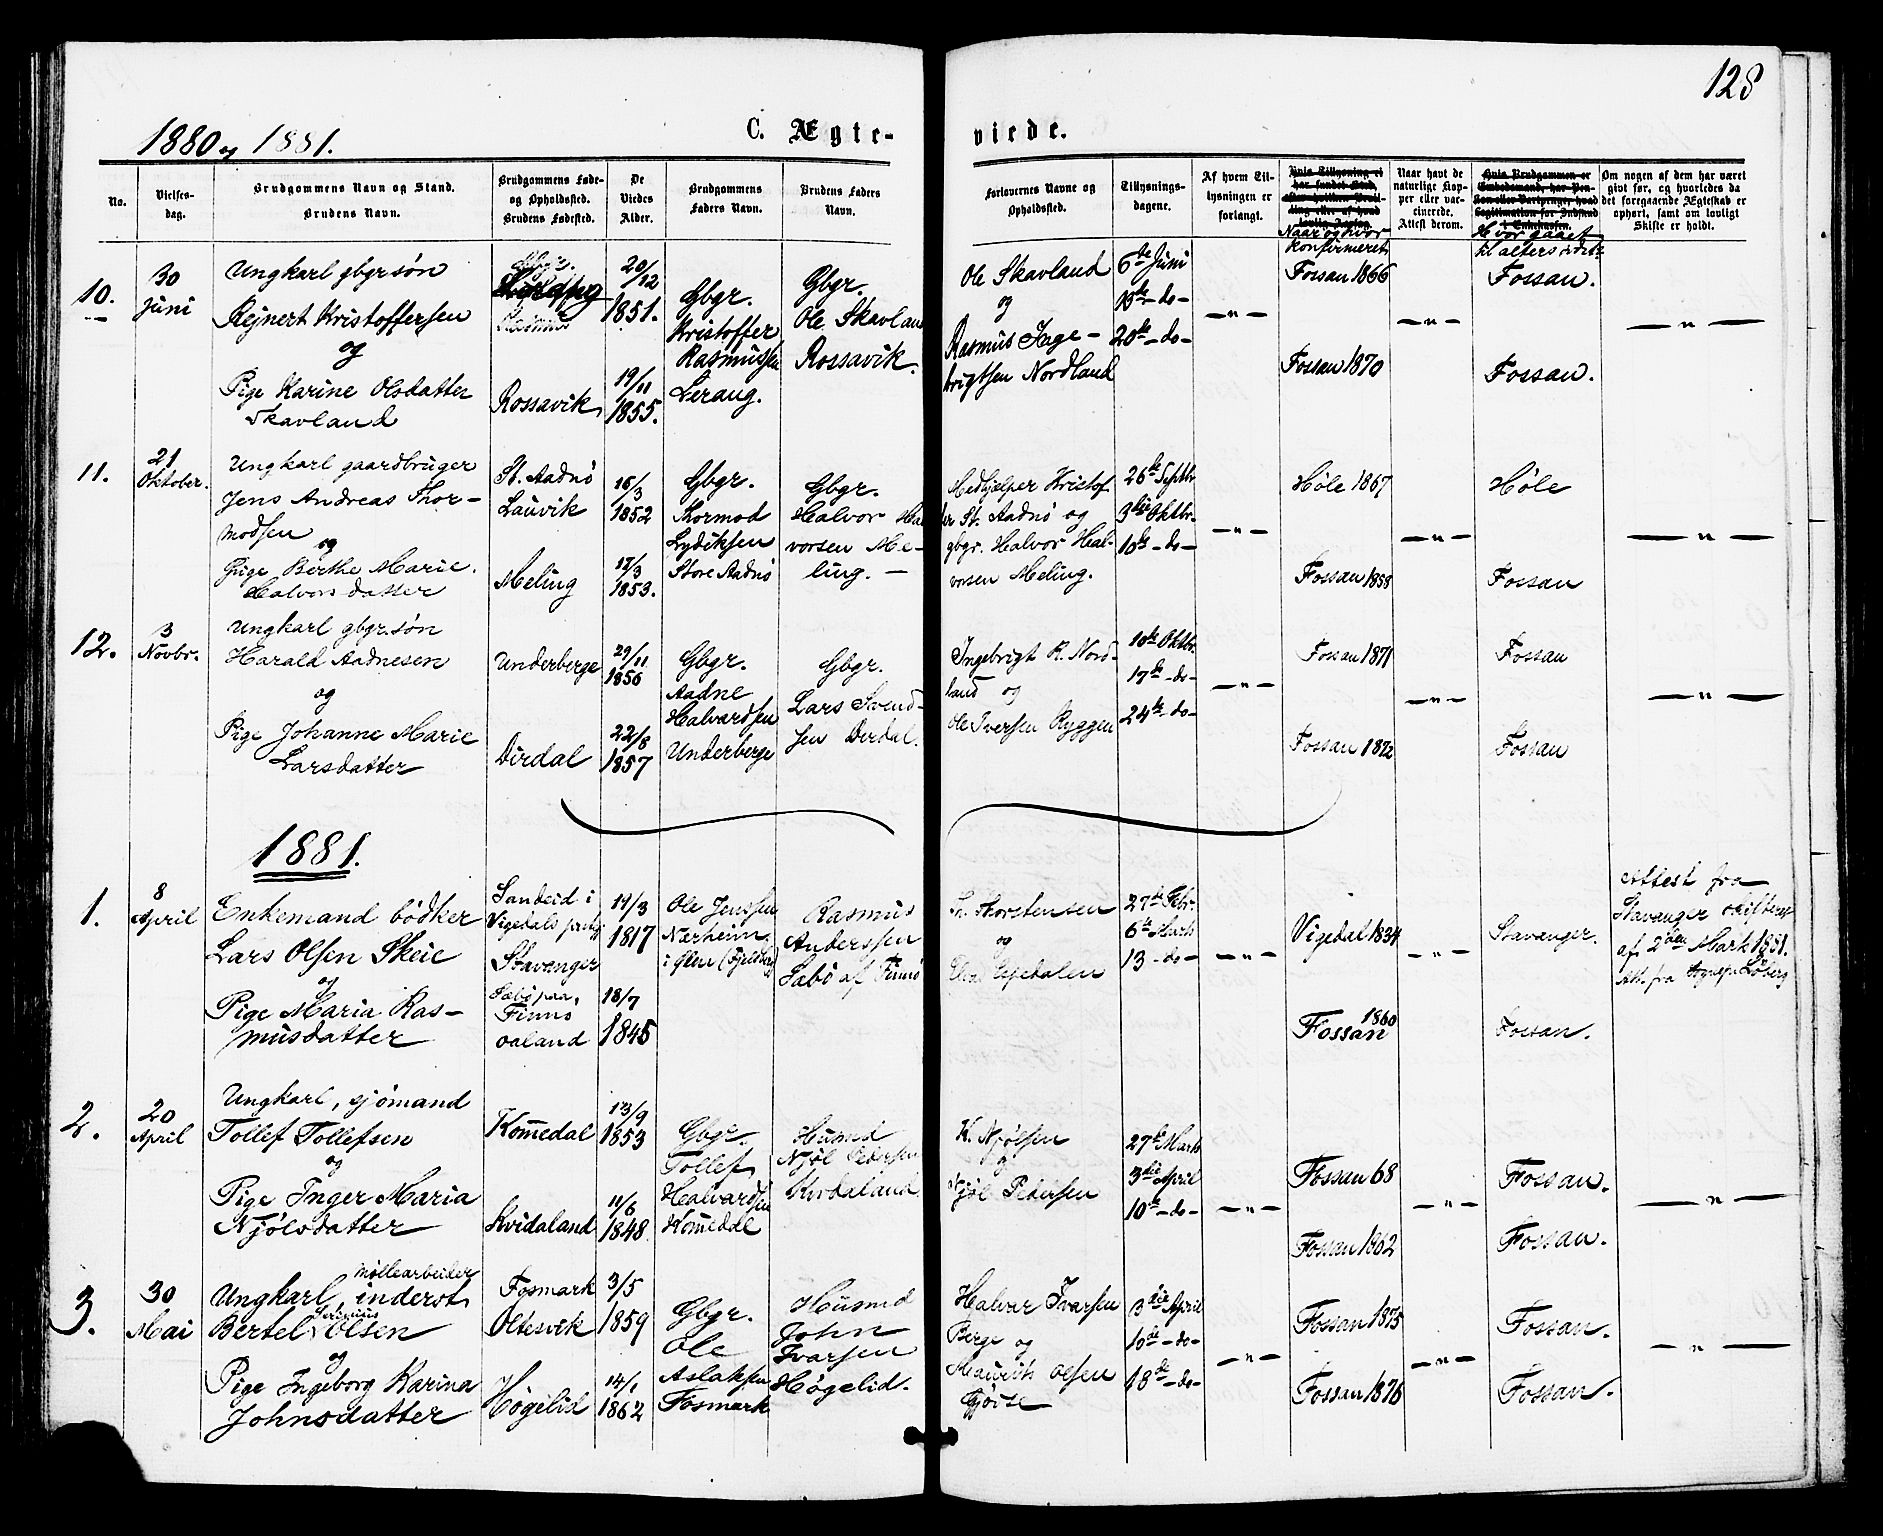 128
1880 og 1881.
C. Ægte-
viede.
No.
Vielses-
dag.
Brudgommens Navn og Stand.
Brudens Navn.
Brudgommens Føde-
og Opholdssted.
Brudens Fødested.
De
Viedes
Alder.
Brudgommens
Faders Navn.
Brudens Faders
Navn.
Forlovernes Navne og
Opholdssted.
Tillysnings-
dagene.
Af hvem Til-
lysningen er
forlangt.
Naar og hvor
konfirmeret
Naar havt de
naturlige Kop-
per eller vac-
cinerede.
Attest derom.
Hvor gaaet
til alters sidst
Om nogen af dem har været
givt før, og hvorledes da
det foregaaende Ægteskab er
ophørt, samt om lovligt
Skifte er holdt.
10.
30
Juni
Ungkarl gbgrsøn
Rejnert Kristoffersen
og
Pige Karine Olsdatter
Skavland
Rossavik
20/12
1851.
19/11
1855.
Gbgr.
Kristoffer
Rasmussen
Lerang.
Gbgr.
Ole Skavland
Rossavik.
Ole Skavland
og
Rasmus Inge-
brigtsen Nordland
6te Juni
13de -do-
20de -do-
-"-
Fossan 1866
Fossan 1870
-"-
Fossan.
Fossan.
-"-
11.
21
Oktober.
Ungkarl gaardbruger
Jens Andreas Thor-
modsen
og
Pige Berthe Marie
Halvorsdatter
St. Aadnö
Lauvik
Meling
16/3
1852
18/3
1853.
Gbgr.
Tormod
Lydiksen
Store Aadnö
Gbgr.
Halvor Hal
vorsen Me-
ling. -
Medhjælper Kristof
fer St. Aadnö og
gbgr. Halvor Hal-
vorsen Meling.
26de Septbr
3die Oktbr.
10de -do-
-"-
Høle 1867
Fossan 1858
-"-
Høle
Fossan
-"-
12.
3
Novbr.
Ungkarl gbgr.søn
Harald Aadnesen
og
Pige Johanne Marie
Larsdatter
Underberge
Dirdal
29/11
1856
22/8
1857
Gbgr.
Aadne
Halvardsen
Underberge
Gbgr.
Lars Svend-
sen Dirdal.
Ingebrigt R. Nord-
land og
Ole Iversen Ryggen
10de Oktbr.
17de -do-
24de -do-
-"-
Fossan 1871
Fossan 1872
-"-
Fossan
Fossan
-"-
1881.
1.
8
April
Enkemand bödker
Lars Olsen Skeie
og
Pige Maria Ras-
musdatter
Sandeid i
Vigedals prstgj
Stavanger
Sæbö paa
Finnö
19/3
1817
18/7
1845
Ole Jenssen
Nærheim
Rasmus
Anderssen
Sæbö af Finnö
Thorstensen
og
27de Febr.
6te Marts
13 -do-
-"-
Vigedal 1834
Fossan 1860
-"-
Stavanger.
Fossan.
Attest fra
Stavanger skifteret
af 2den Marts 1881.
Att. fra
2.
20
April
Ungkarl, sjömand
Tollef Tollefsen
og
Pige Inger Maria
Njölsdatter
Kommedal
Kvidaland
13/9
1853
11/6
1848
Gbgr.
Tollef
Halvardsen
Kommedal
Husmd
Njöl Pedersen
Kvidaland
K. Njölsen
og
Njöl Pedersen
27de Marts
3die April
10de -do-
-"-
Fossan 68
Fossan 1862
-"-
Fossan.
Fossan.
-"-
3.
30
Mai
Ungkarl, møllearbeider
inderst
Bertel Serinius Olsen
og
Pige Ingeborg Karina
Johnsdatter
Fosmark
Oltesvik
Høgelid
3/5
1859
14/1
1862
Gbgr.
Ole
Aslaksen
Fosmark
Husmd
John
Ivarsen
Høgelid.
Halvar Ivarsen
Berge og
Maurits Olsen
Gjöse
3die April
10de -do-
18de -do-
-"-
Fossan 1875
Fossan 1876
-"-
Fossan.
Fossan.
-"-